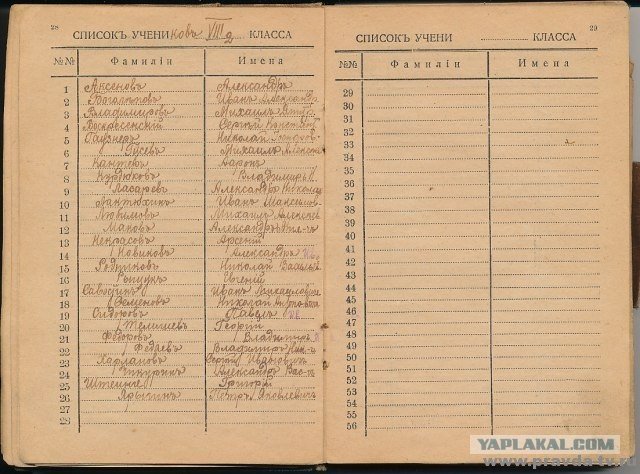 28
СПИСОКЪ УЧЕНИковъ VIII2 КЛАССА
№№ Фамиліи Имена
1 Аксеновъ Александръ
2 Иванъ Александр.
3 Владимировъ Михаилъ
4 Воскресенский Сергѣй Констант.
5 Николай
6 Гусевъ Михаилъ Алексан.
7 Кантевъ Ааронъ
8 Курдюковъ Владимиръ
9 Лазаревъ Александръ Николае
10 Лактюхинъ Иванъ
11 Любимовъ Михаилъ Алексан.
12 Маковъ Александръ
13 Некрасовъ Арсений
14 Новиковъ Александръ
15 Родниковъ Николай Василь.
16 Евгений
17 Иванъ Михайловичъ
18 Семеновъ Николай
19 Сидоровъ Павелъ
20 Телишевъ Георгий
21 Федоровъ Владимиръ
22 Федяевъ Владимиръ
23 Харламовъ Сергѣй Ивановичъ
24 Александръ
25 Григорий
26 Ярыгинъ Петръ Яковлевичъ
27
28
29
СПИСОКЪ УЧЕНИ КЛАССА
№№ Фамиліи Имена
29
30
31
32
33
34
35
36
37
38
39
40
41
42
43
44
45
46
47
48
49
50
51
52
53
54
55
56
YAPLAKAL.COM
www.pravda-tv.ru